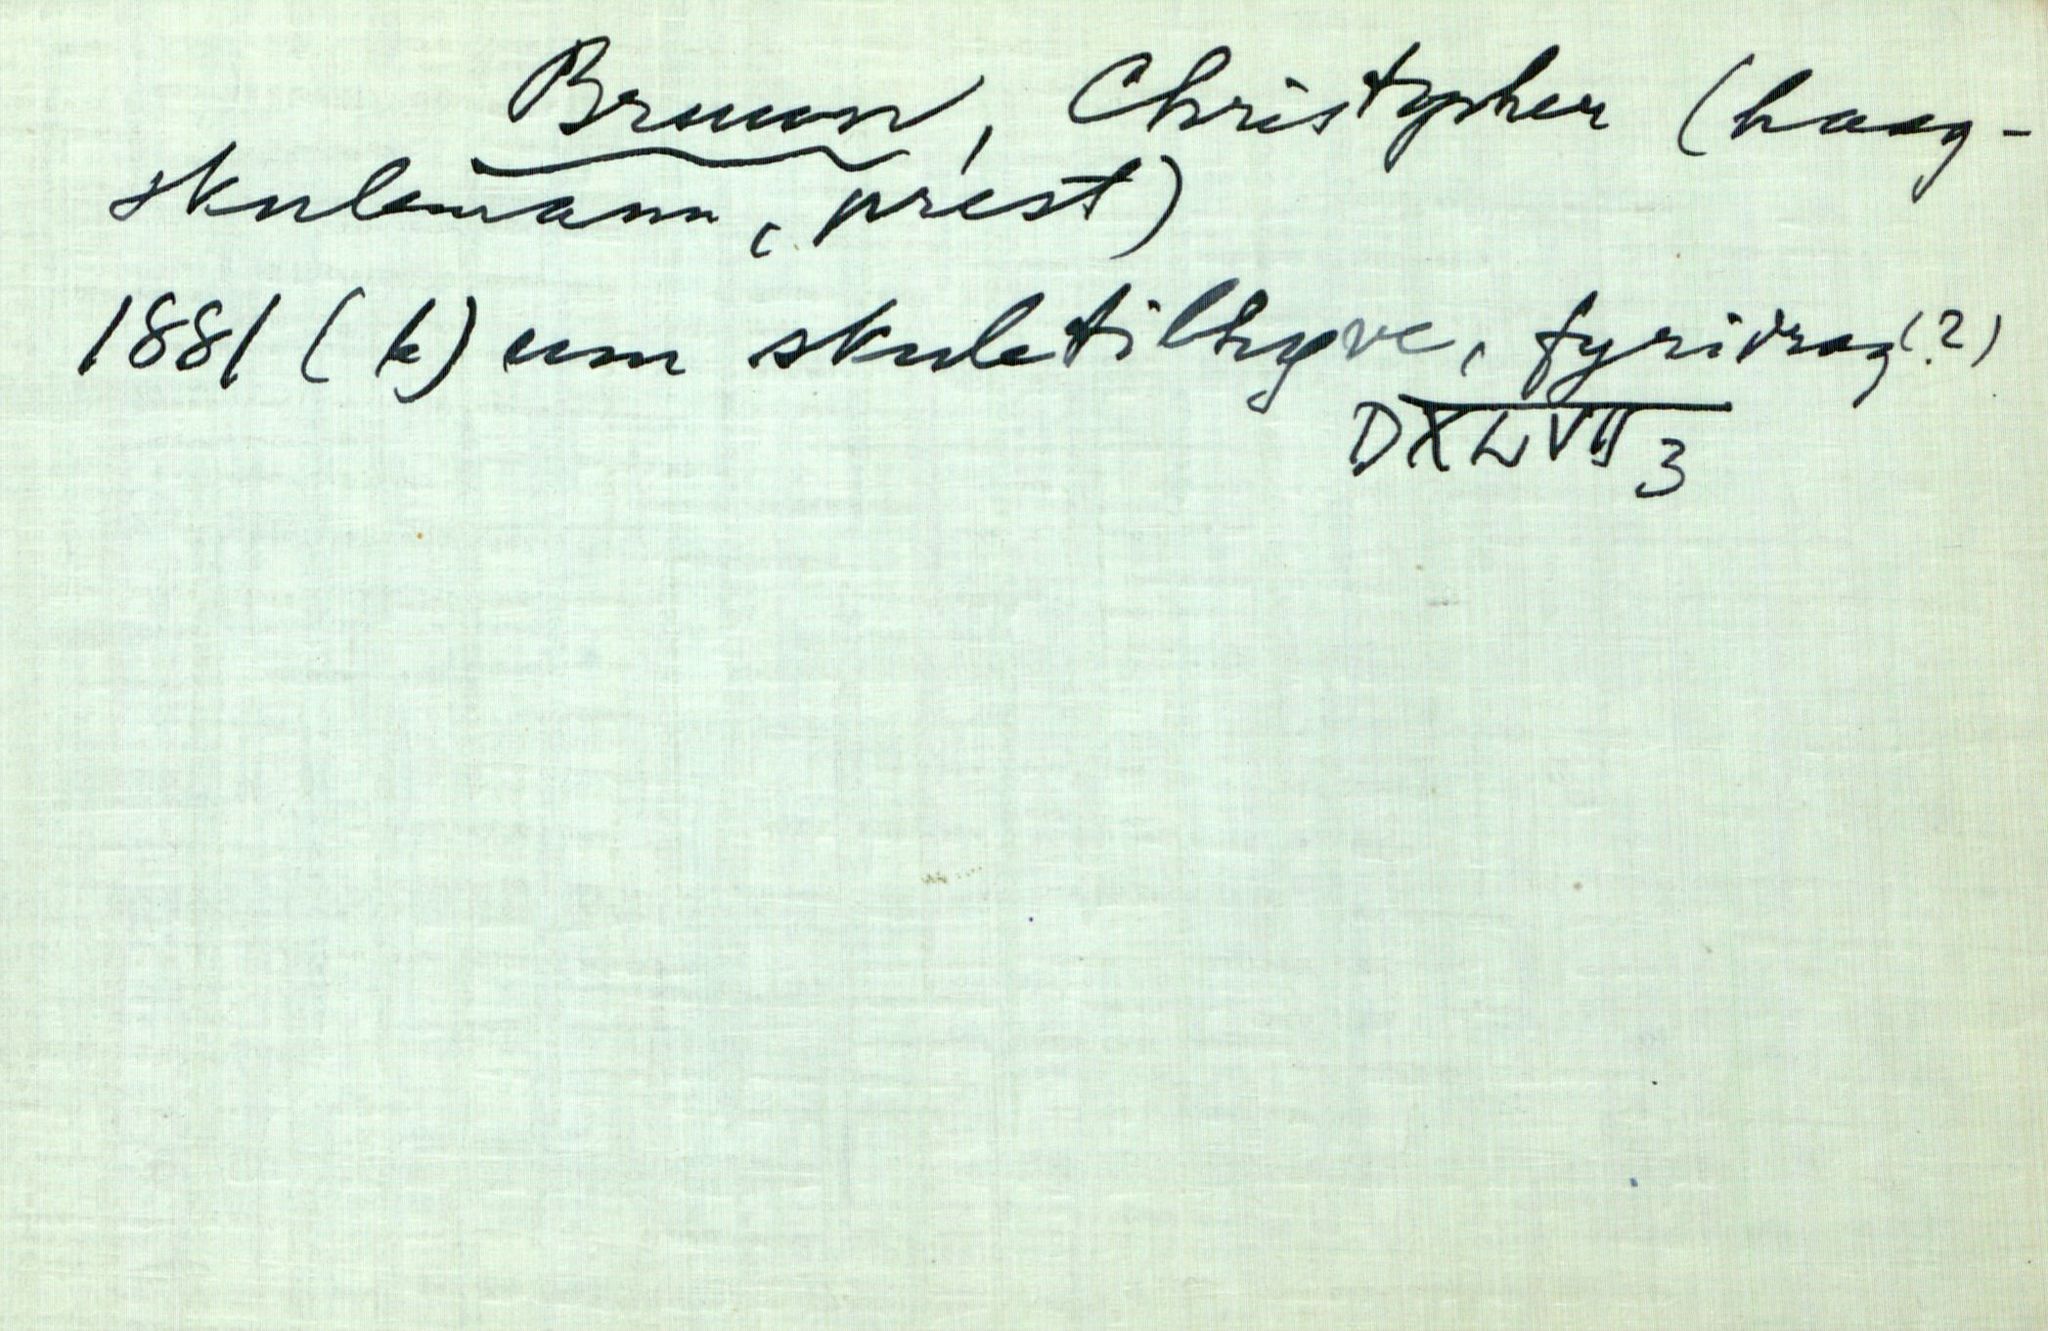 Bruun, Christopher (haag-
skulemann, prest)
1881 (k) um skuletilhøve, fyridrag (?)
DXLVII 3